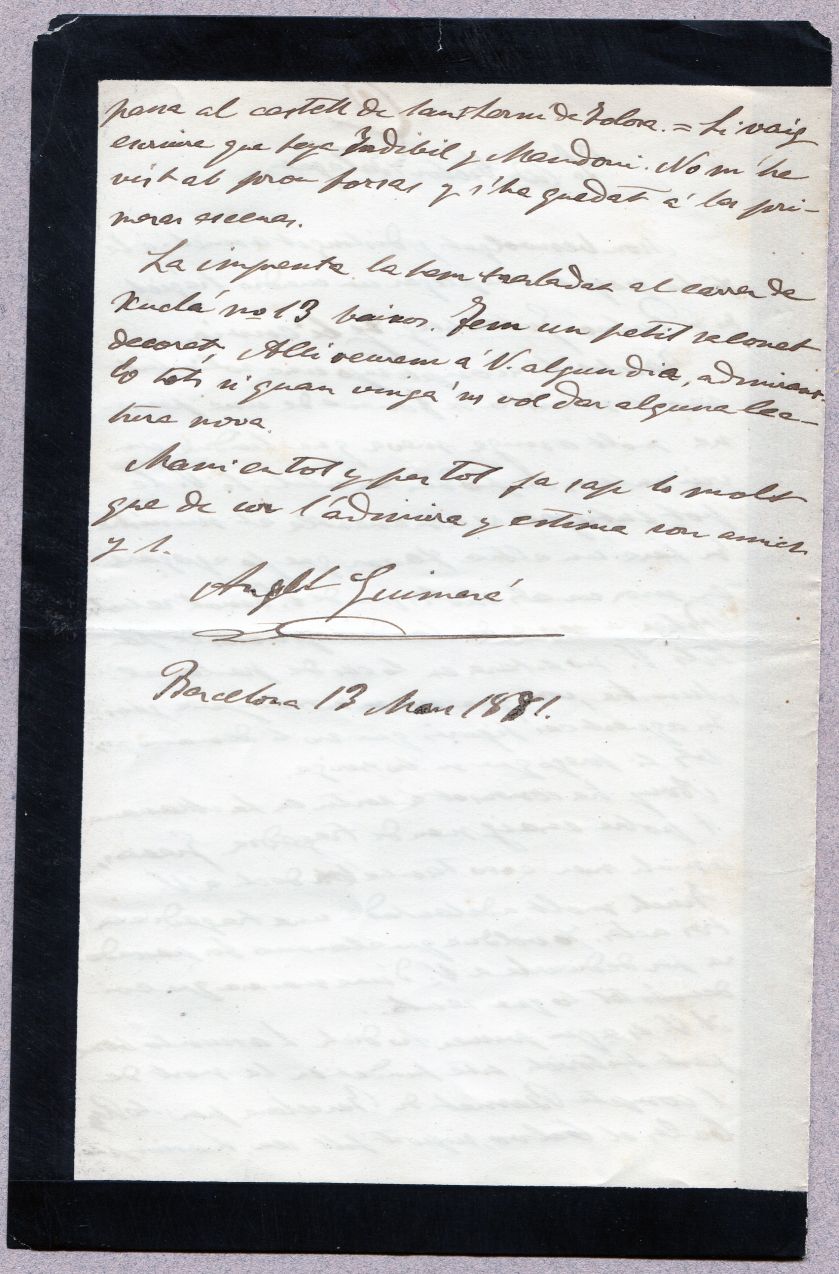 passa al castell de Sant Hermí de Tolosa. = Li vaig
escriure que feya Indibil y Mandoni. No m'he
vist ab prou forsas y s'ha quedat á las pri-
meras escenas.
La imprenta la hem trasladat al carrer de
Xuclá nº 13 baixos. Fem un petit salonet
decorat. Allí veurem á V. algun dia, admirant
lo tots, si quan vinga 'ns vol dar alguna lec-
tura nova.
Mani en tot y per tot ja sap lo molt
que de cor l'admira y estima son amich
y s.
Angel Guimerá
Barcelona 13 Mars 1881.